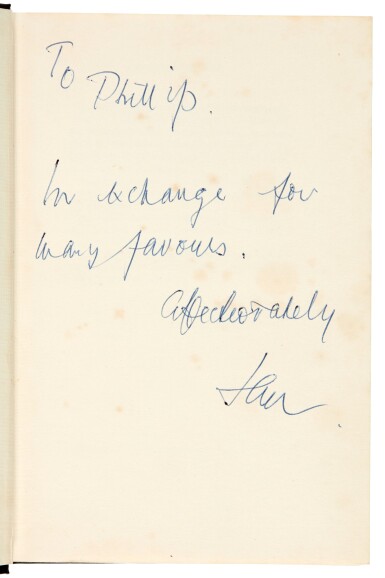 To Phillip.
In exchange for
many favours.
Affectionately
Ian